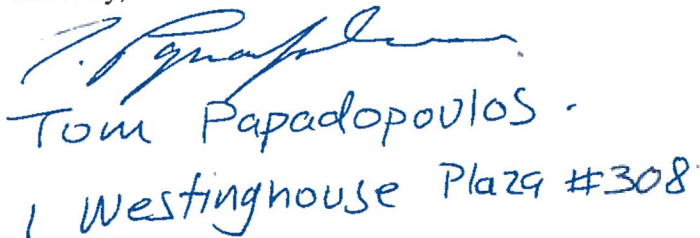 Tom Papadopoulos.
1 Westinghouse Plaza #308